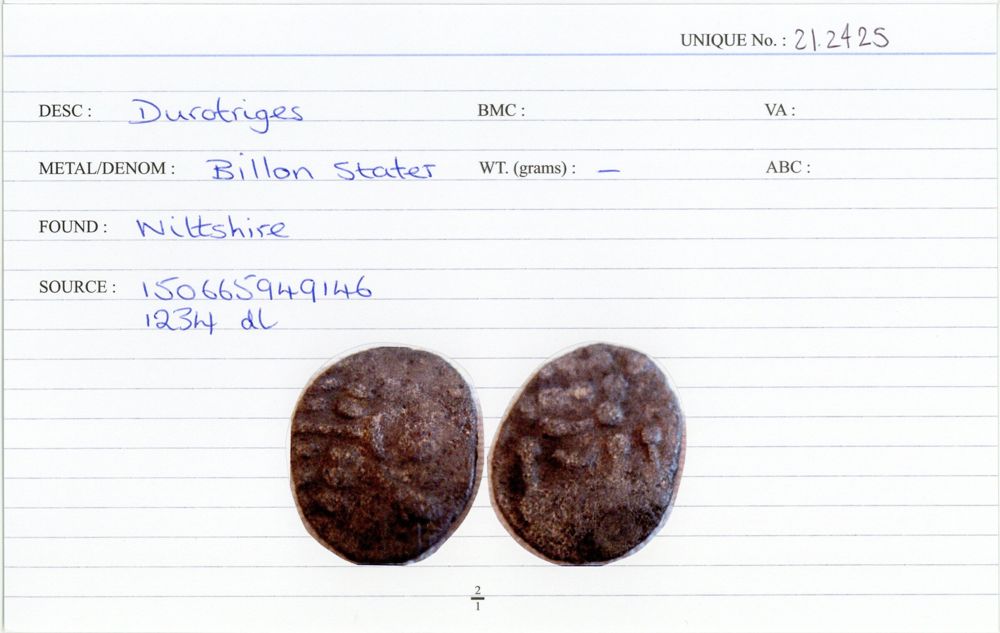 UNIQUE No. : 21.2425
DESC : Durotriges BMC : VA :
METAL/DENOM : Billon Stater WT. (grams) : – ABC :
FOUND : Wiltshire
SOURCE : 150665949146
1234 dl
2
1